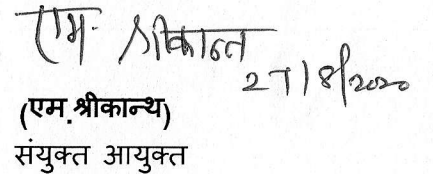 एम. श्रीकान्त
27/8/2020
(एम.श्रीकान्थ)
संयुक्त आयुक्त